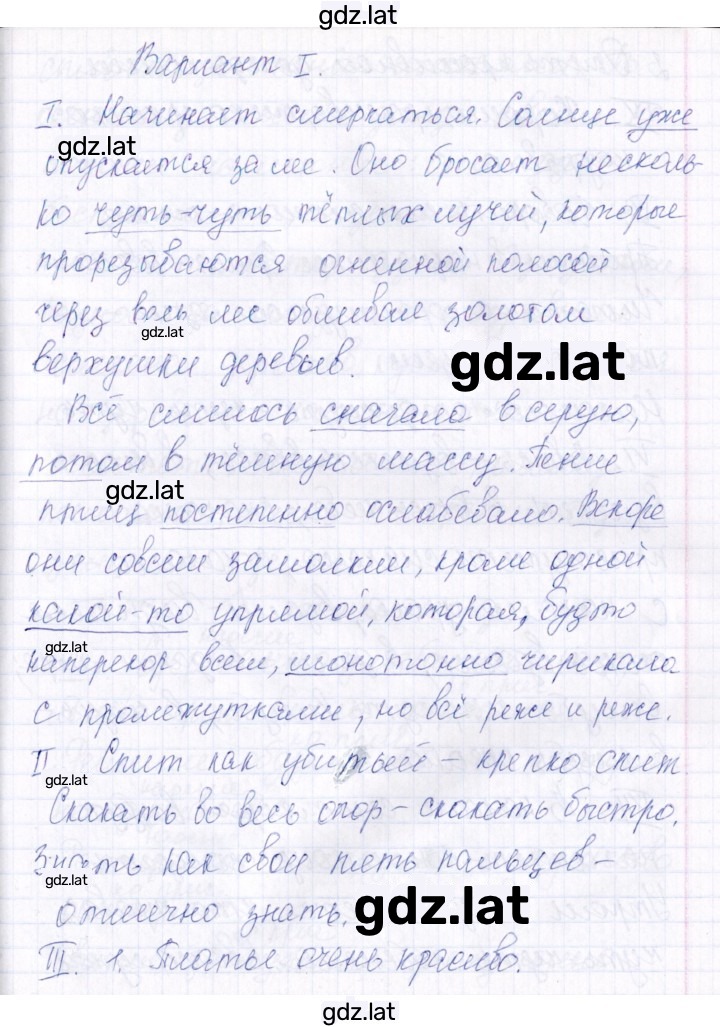 gdz.lat
Вариант I.
I. Начинает смеркаться. Солнце уже
gdz.lat
опускается за лес. Оно бросает несколь-
ко чуть-чуть тёплых лучей, которые
прорезываются огненной полосой
через весь лес обливая золотом
gdz.lat
верхушки деревьев.
gdz.lat
Всё слилось сначала в серую,
потом в тёмную массу. Пение
gdz.lat
птиц постепенно ослабевало. Вскоре
они совсем замолкли, кроме одной
какой-то упрямой, которая, будто
gdz.lat
наперекор всем, монотонно чирикала
с промежутками, но всё реже и реже.
II Спит как убитый – крепко спит.
gdz.lat
Скакать во весь опор – скакать быстро.
Знать как свои пять пальцев –
gdz.lat
отлично знать.
gdz.lat
III. 1. Платье очень красиво.
gdz.lat
gdz.lat